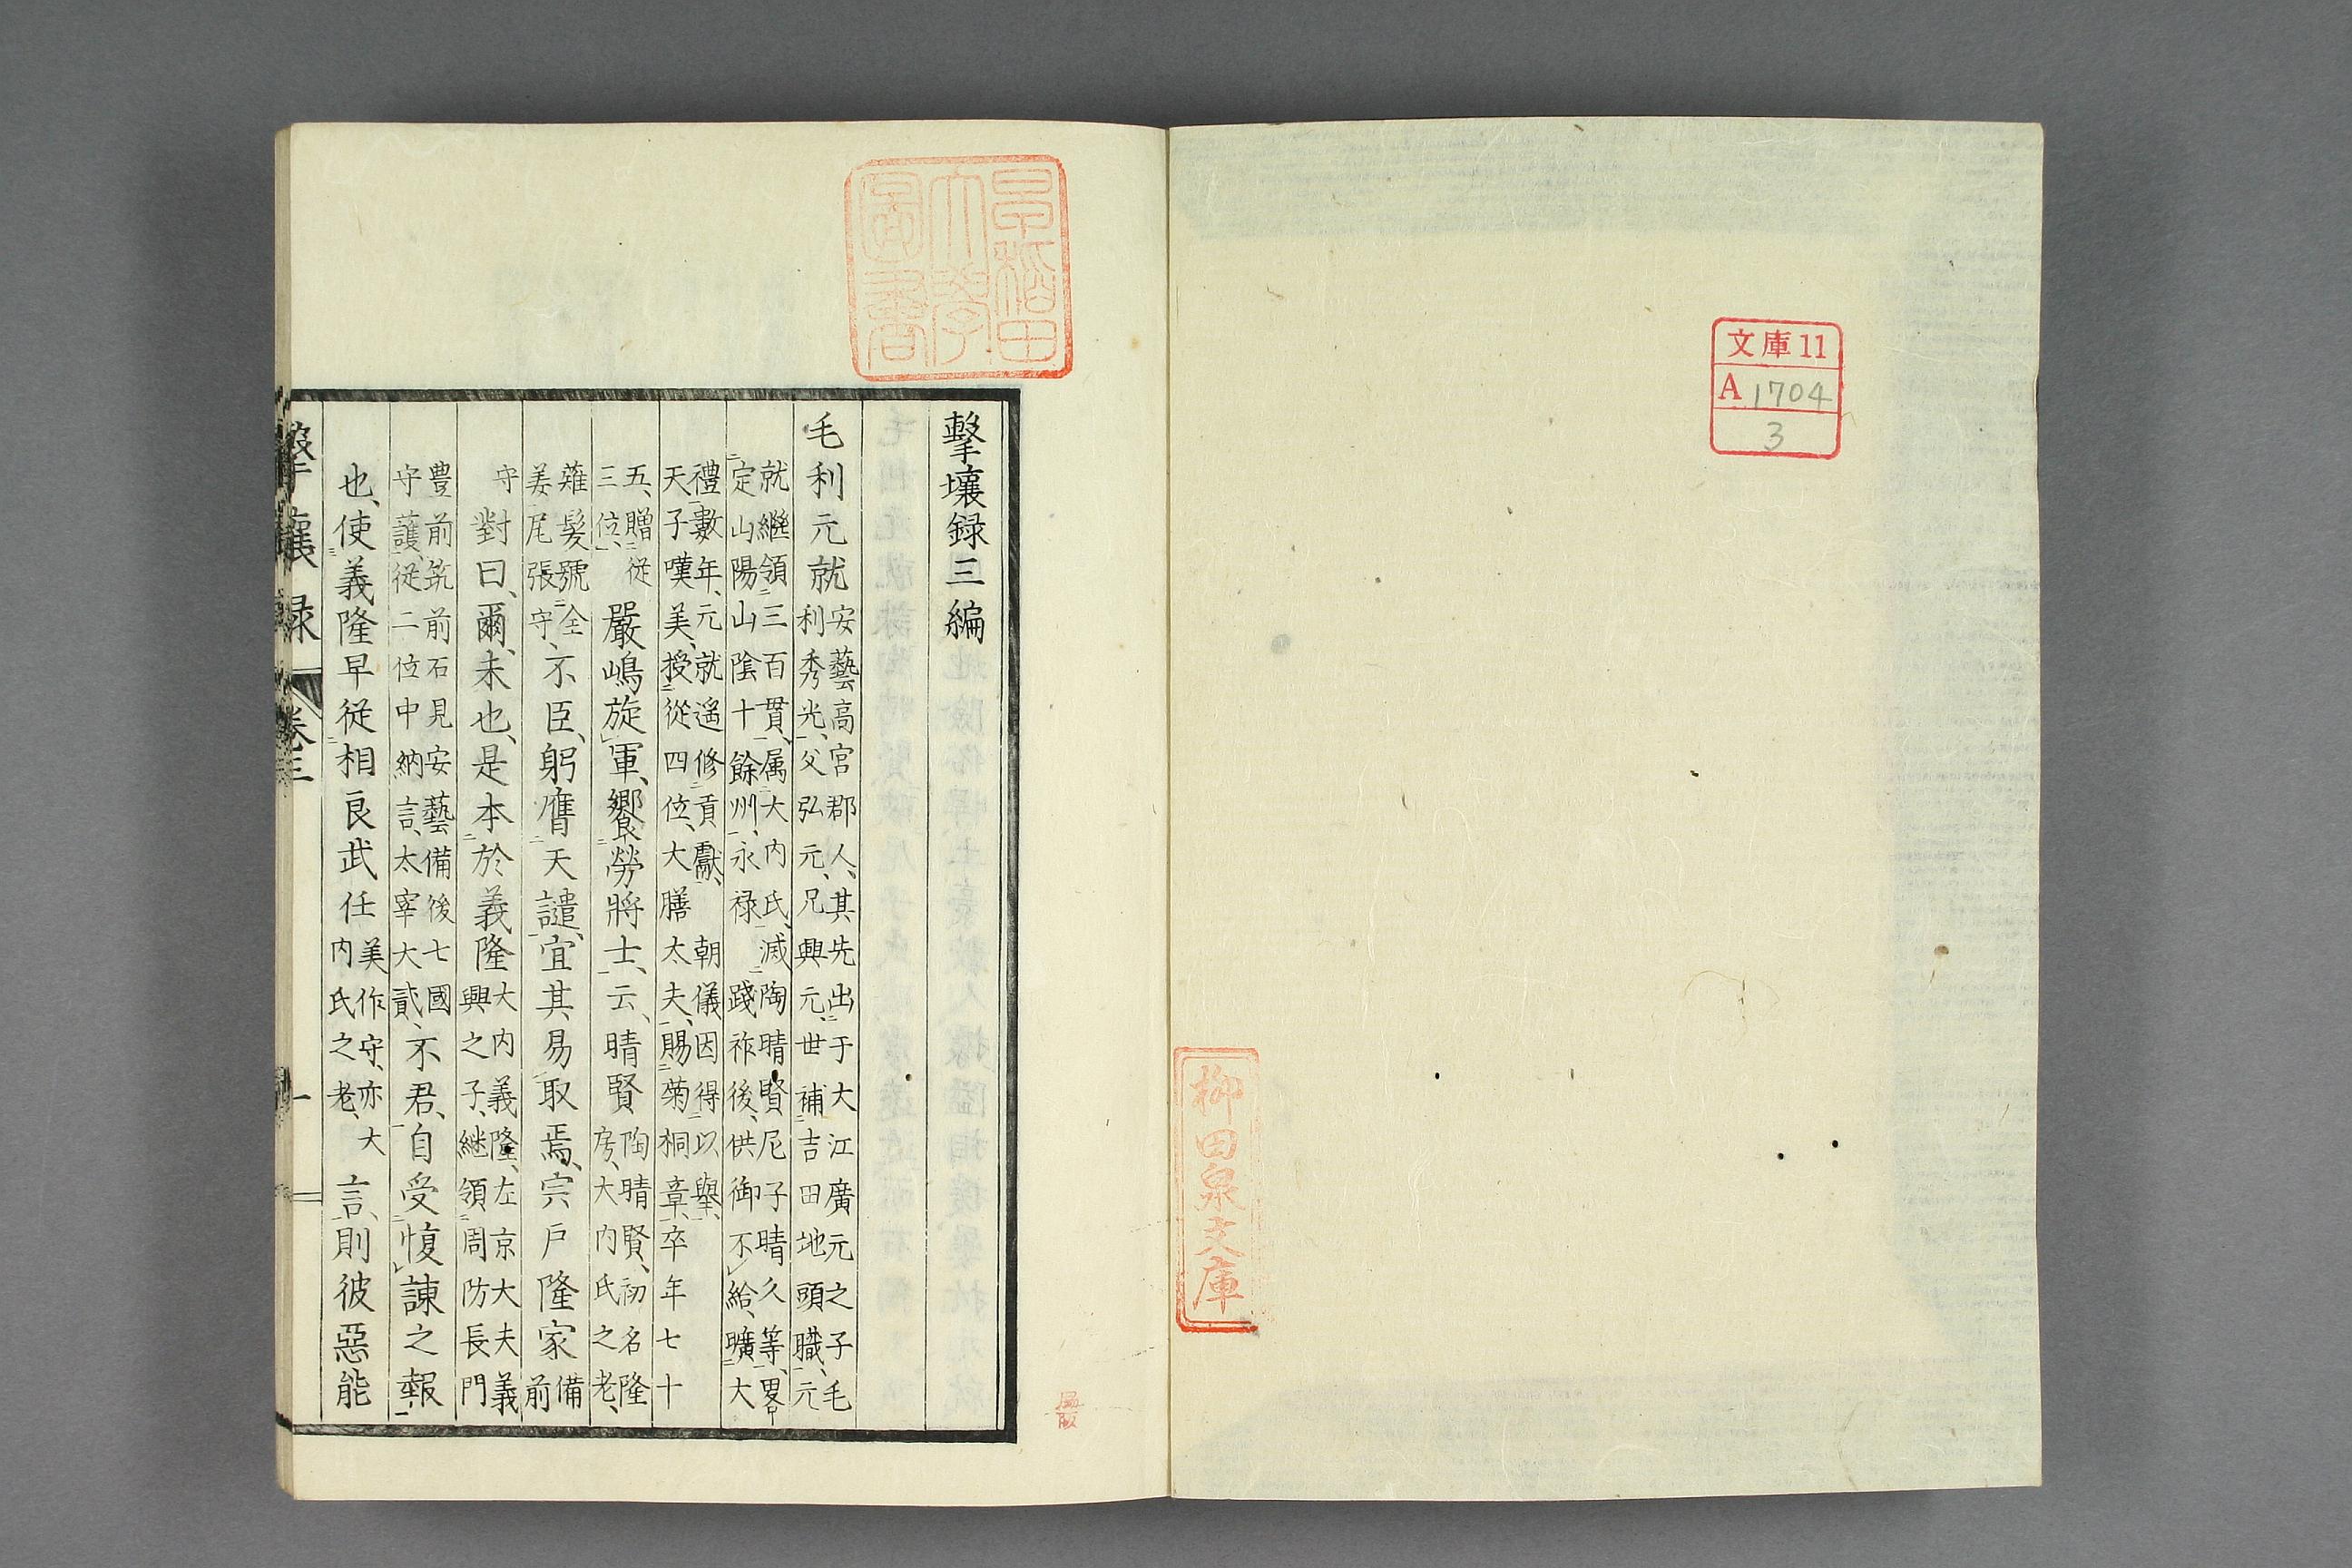 文庫11
A 1704
3
柳田泉文庫
早稲田大學圖書
擊壤録三編
毛利元就
安藝高宮郡人、其先出于大江廣元之子毛
利秀光、父弘元、兄興元、世補吉田地頭職、元
就繼領三百貫、属大内氏、滅陶晴賢尼子晴久等、畧
定山陽山陰十餘州、永禄　踐祚後、供御不給、曠大
禮數年、元就遙修貢獻、　朝儀因得以舉、
天子嘆美、授從四位、大膳太夫、賜菊桐章、卒年七十
五、贈從
三位、
嚴嶋旋軍、饗勞將士、云、晴賢
陶晴賢、初名隆
房、大内氏之老、
薙髮號全
姜尾張守、
不臣、躬膺天譴、宜其易取焉、宍戶隆家
備
前
守
對曰、爾、未也、是本於義隆
大内義隆、左京大夫義
興之子、継領周防長門
豊前筑前石見安藝備後七國
守護、從二位中納言、太宰大貳、
不君、自受愎諫之報
也、使義隆早從相良武任
美作守、亦大
内氏之老、
言、則彼惡能
擊壤録　卷三　一